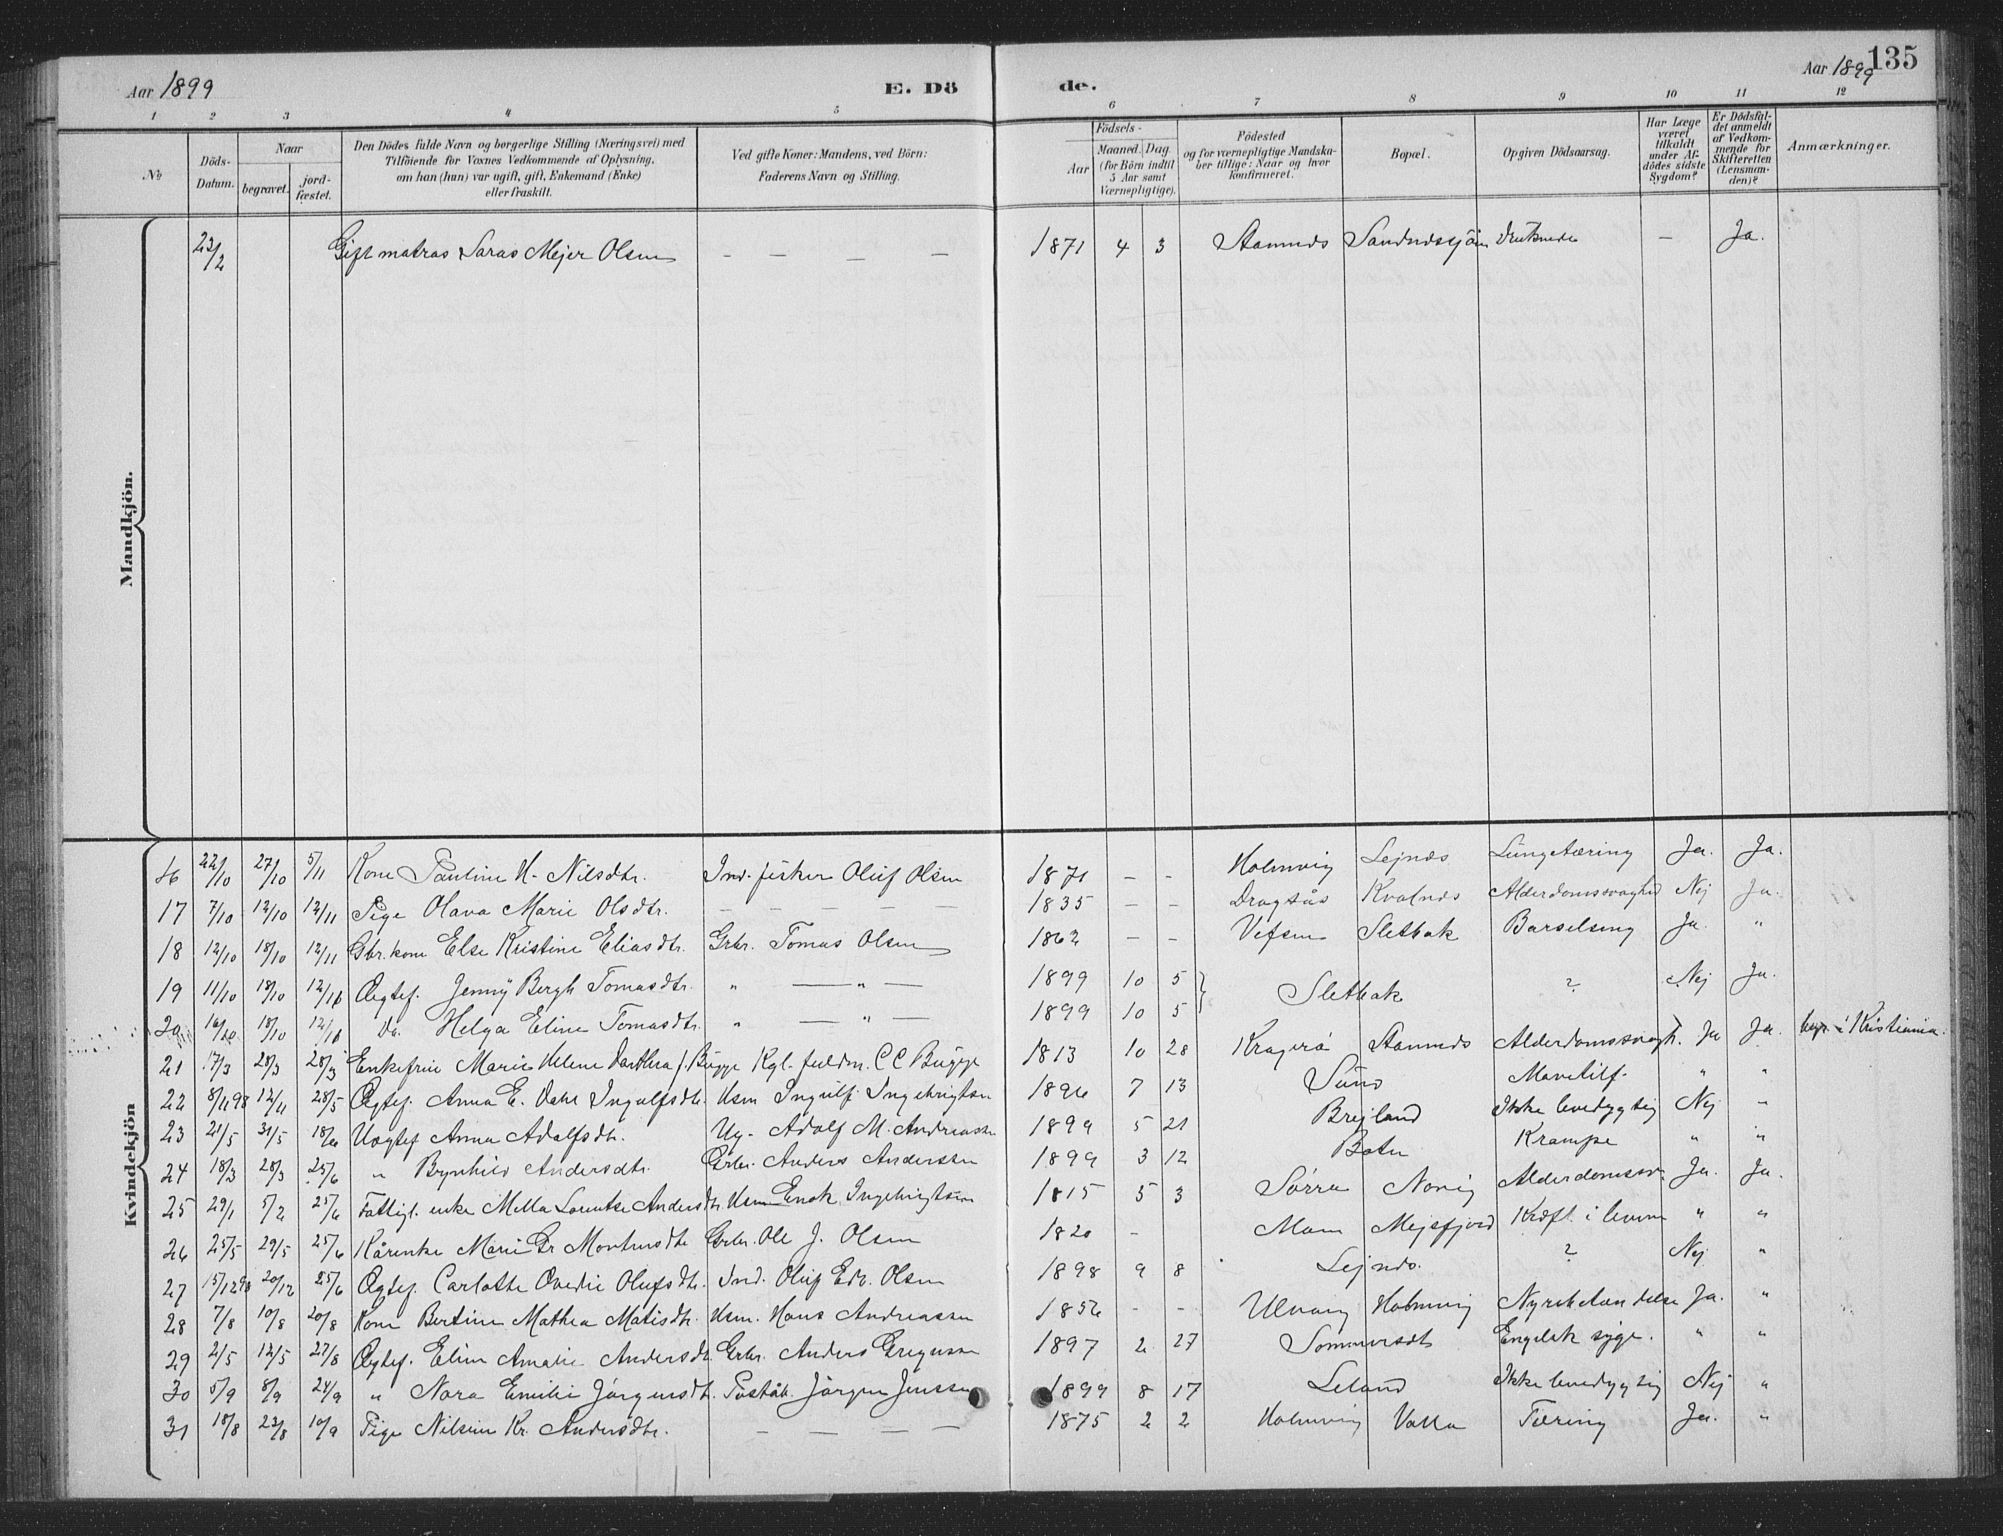 Aar 1899 E. Dö de. Aar 1899 135
1 2 3 4 5 6 7 8 9 10 11 12
№ Döds-Datum. Naar begravet. jord-fæstet. Den Dödes fulde Navn og borgerlige Stilling (Næringsvei) med Tilföiende for Voxnes Vedkommende af Oplysning, om han (hun) var ugift, gift, Enkemand (Enke) eller fraskilt. Ved gifte Koner: Mandens, ved Börn: Faderens Navn og Stilling. Födsels- Aar Maaned. Dag. (for Börn indtil 5 Aar samt Værnepligtige). Födested og for værnepligtige Mandska-ber tillige: Naar og hvor konfirmeret. Bopæl. Opgiven Dödsaarsag. Har Læge været tilkaldt under Af-dödes sidste Sygdom? Er Dödsfal-det anmeldt af Vedkom-mende for Skifteretten (Lensman-den)? Anmærkninger.
Mandkjön.
23/2 Gift matros Saras Mejer Olsen — — — — 1871 4 3 Stamnes Sandnessjöen Druknede — Ja.
Kvindekjön
16 22/10 27/10 5/11 Kone Pauline H. Nilsdtr. Ind. fisker Oluf Olsen 1871 - - Holmvig Lejnes Lungetæring Ja. Ja.
17 7/10 12/10 12/11 Pige Olava Marie Olsdtr. — — — — 1835 - - Dragsås Kvalnes Alderdomssvaghed Nej Ja.
18 12/10 18/10 12/11 Gbr. kone Else Kristine Eliasdtr. Grbr. Tomas Olsen 1862 - - Vefsen Sletbak Barselseng Ja. "
19 11/10 18/10 12/11 Ægtef. Jenny Bergh Tomasdtr. " — " — 1899 10 5 Sletbak ? Nej Ja.
20 16/10 18/10 12/11 Do. Helga Eline Tomasdtr. " — " — 1899 10 5
21 17/3 28/3 28/3 Enkefrue Marie Helene Dorthea f. Bugge Kgl. fuldm. C C Bugge 1813 10 28 Kragerø Stamnes Alderdomssvagh. Ja Ja. begr. i Kristiania.
22 8/11 98 12/11 28/5 Ægtef. Anna E. Dahl Ingulfsdtr. Hsm Ingulf Ingebrigtsen 1896 7 13 Sund Mavetilf. " "
23 21/5 31/5 18/6 Uægtef Anna Adolfsdtr. Ug. Adolf M. Andreassen 1899 5 21 Brejland Ikke levedygtig Nej "
24 18/3 28/3 25/6 " Brynhild Andersdtr. Grbr. Anders Anderssen 1899 3 12 Boten Krampe " "
25 29/1 5/2 25/6 Fattigl. enke Mella Lorentse Andersdtr. Hsm Enok Ingebrigtsen 1815 5 3 Sørra Norvig Alderdomssv. Ja. Ja.
26 25/5 29/5 25/6 Kårenke Marie Gr Mortensdtr Grbr. Ole J. Olsen 1820 - Mam Mejsfjord Kræft i leveren " "
27 15/12 98 20/12 25/6 Ægtef. Carlotte Ovedie Olufsdtr. Ind. Oluf Edv. Olsen 1898 9 8 Lejnes. ? Nej "
28 7/8 10/8 20/8 Kone Bertine Mathea Matisdtr. Hsm. Hans Andreassen 1856 - - Ulvang Holmvig Nyrebetændelse Ja. "
29 2/5 12/5 27/8 Ægtef. Eline Amalie Andersdtr. Grbr. Anders Gregussen 1897 2 27 Sommersdt Engelsk syge. " "
30 5/9 8/9 24/9 " Nora Emilie Jörgensdtr. Poståb. Jörgen Jenssen 1899 8 17 Leland Ikke levedygtig Nej "
31 18/8 23/8 10/9 Pige Nilsine Kr. Andersdtr. — — — — 1875 2 2 Holmvig Valla Tæring Ja. "